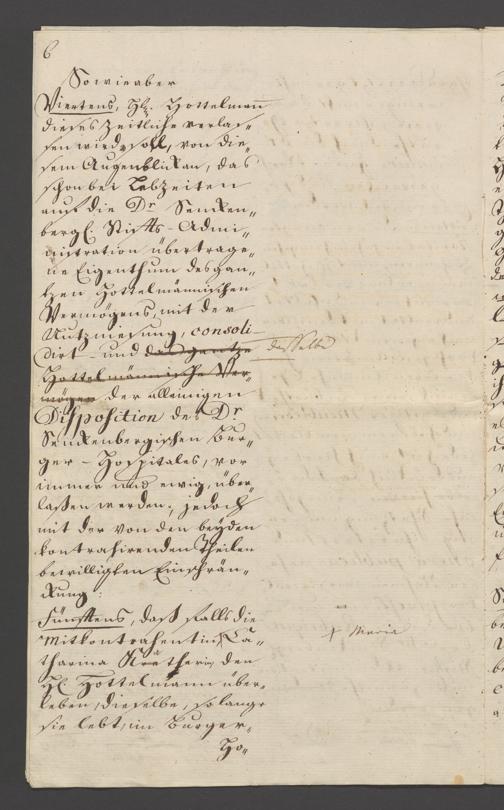 6
Sowie aber
Viertens, H. Hottelmann
dieses Zeitliche verlas„
sen wird, soll, von die„
sem Augenblick an, das
schon bei Lebzeiten
auf die Dr Senken„
bergl. Stifts-Admi„
nistration übertrage„
ne Eigenthum des gan„
tzen Hottelmännischen
Vermögens, mit der
Nutzniesung, consoli„
dirt – und das gantze dasselbe
Hottelmännische Ver„
mögen der alleinigen
Disposition des Dr
Senkenbergischen Bur„
ger-Hospitales, vor
immer und ewig, über„
lassen werden; jedoch
mit der von den beyden
kontrahirenden Theilen
bewilligten Einschrän„
kung:
Fünftens, dass falls die
Mitkontrahentin, Ca„ + Maria
tharina den
H. Hottelmann über„
leben, dieselbe, so lange
sie lebt, im Burger„
Ho„